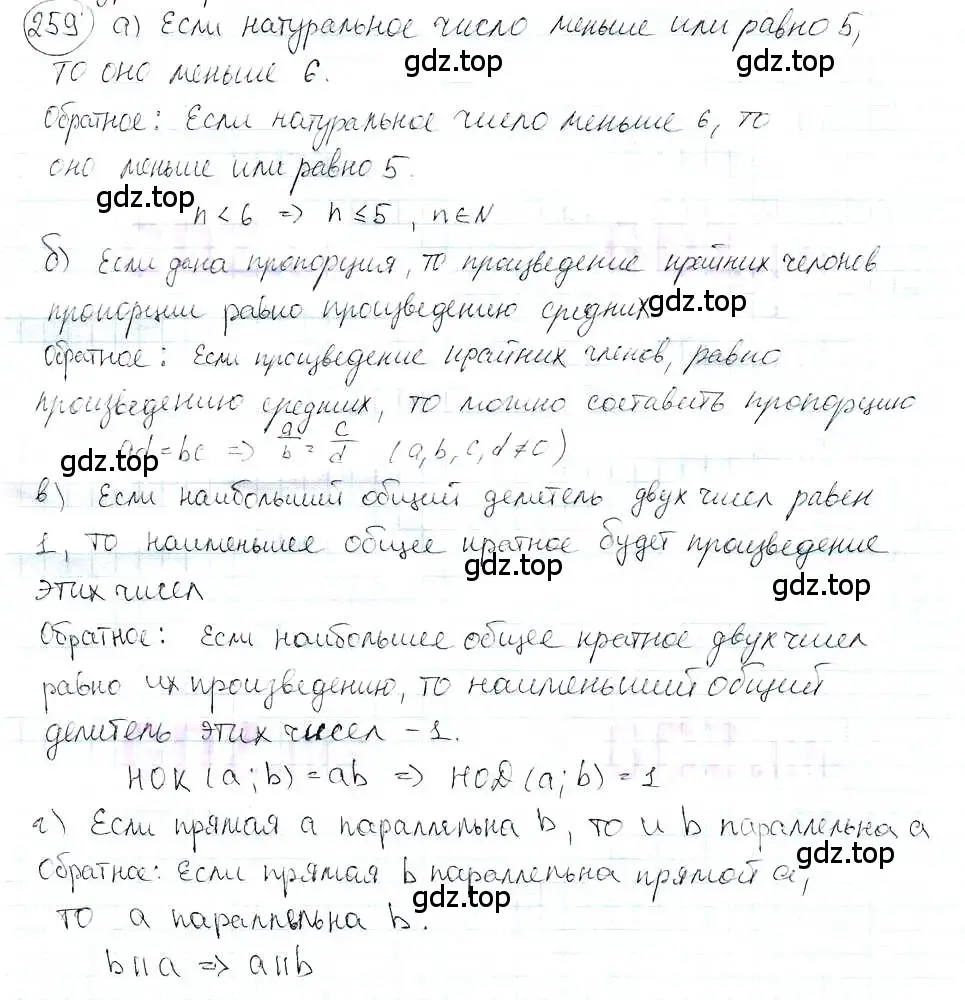 259 а) Если натуральное число меньше или равно 5,
gdz.top
то оно меньше 6.
gdz.top
Обратное: Если натуральное число меньше 6, то
оно меньше или равно 5.
gdz.top
n < 6 => n ≤ 5 , n ∈ N
б) Если дана пропорция, то произведение крайних челонов
пропорции равно произведению средних
gdz.top
Обратное: Если произведение крайних членов, равно
произведению средних, то можно составить пропорцию
ad = bc => a/b = c/d (a, b, c, d ≠ 0)
gdz.top
в) Если наибольший общий делитель двух чисел равен
1, то наименьшее общее кратное будет произведение
gdz.top
этих чисел
gdz.top
Обратное: Если наибольшее общее кратное двух чисел
равно их произведению, то наименьший общий
делитель этих чисел - 1.
НОК (a; b) = ab => НОД (a; b) = 1
г) Если прямая a параллельна b, то и b параллельна a
gdz.top
Обратное: Если прямая b параллельна прямой a,
gdz.top
то a параллельна b.
b || a => a || b